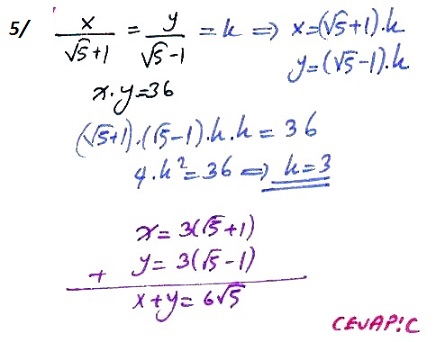 5/ x/(√5+1) = y/(√5-1) = k ⇒ x=(√5+1).k
y=(√5-1).k
x.y=36
(√5+1).(√5-1).k.k = 36
4.k²=36 ⇒ k=3
x= 3(√5+1)
+ y= 3(√5-1)
x+y= 6√5
CEVAP:C